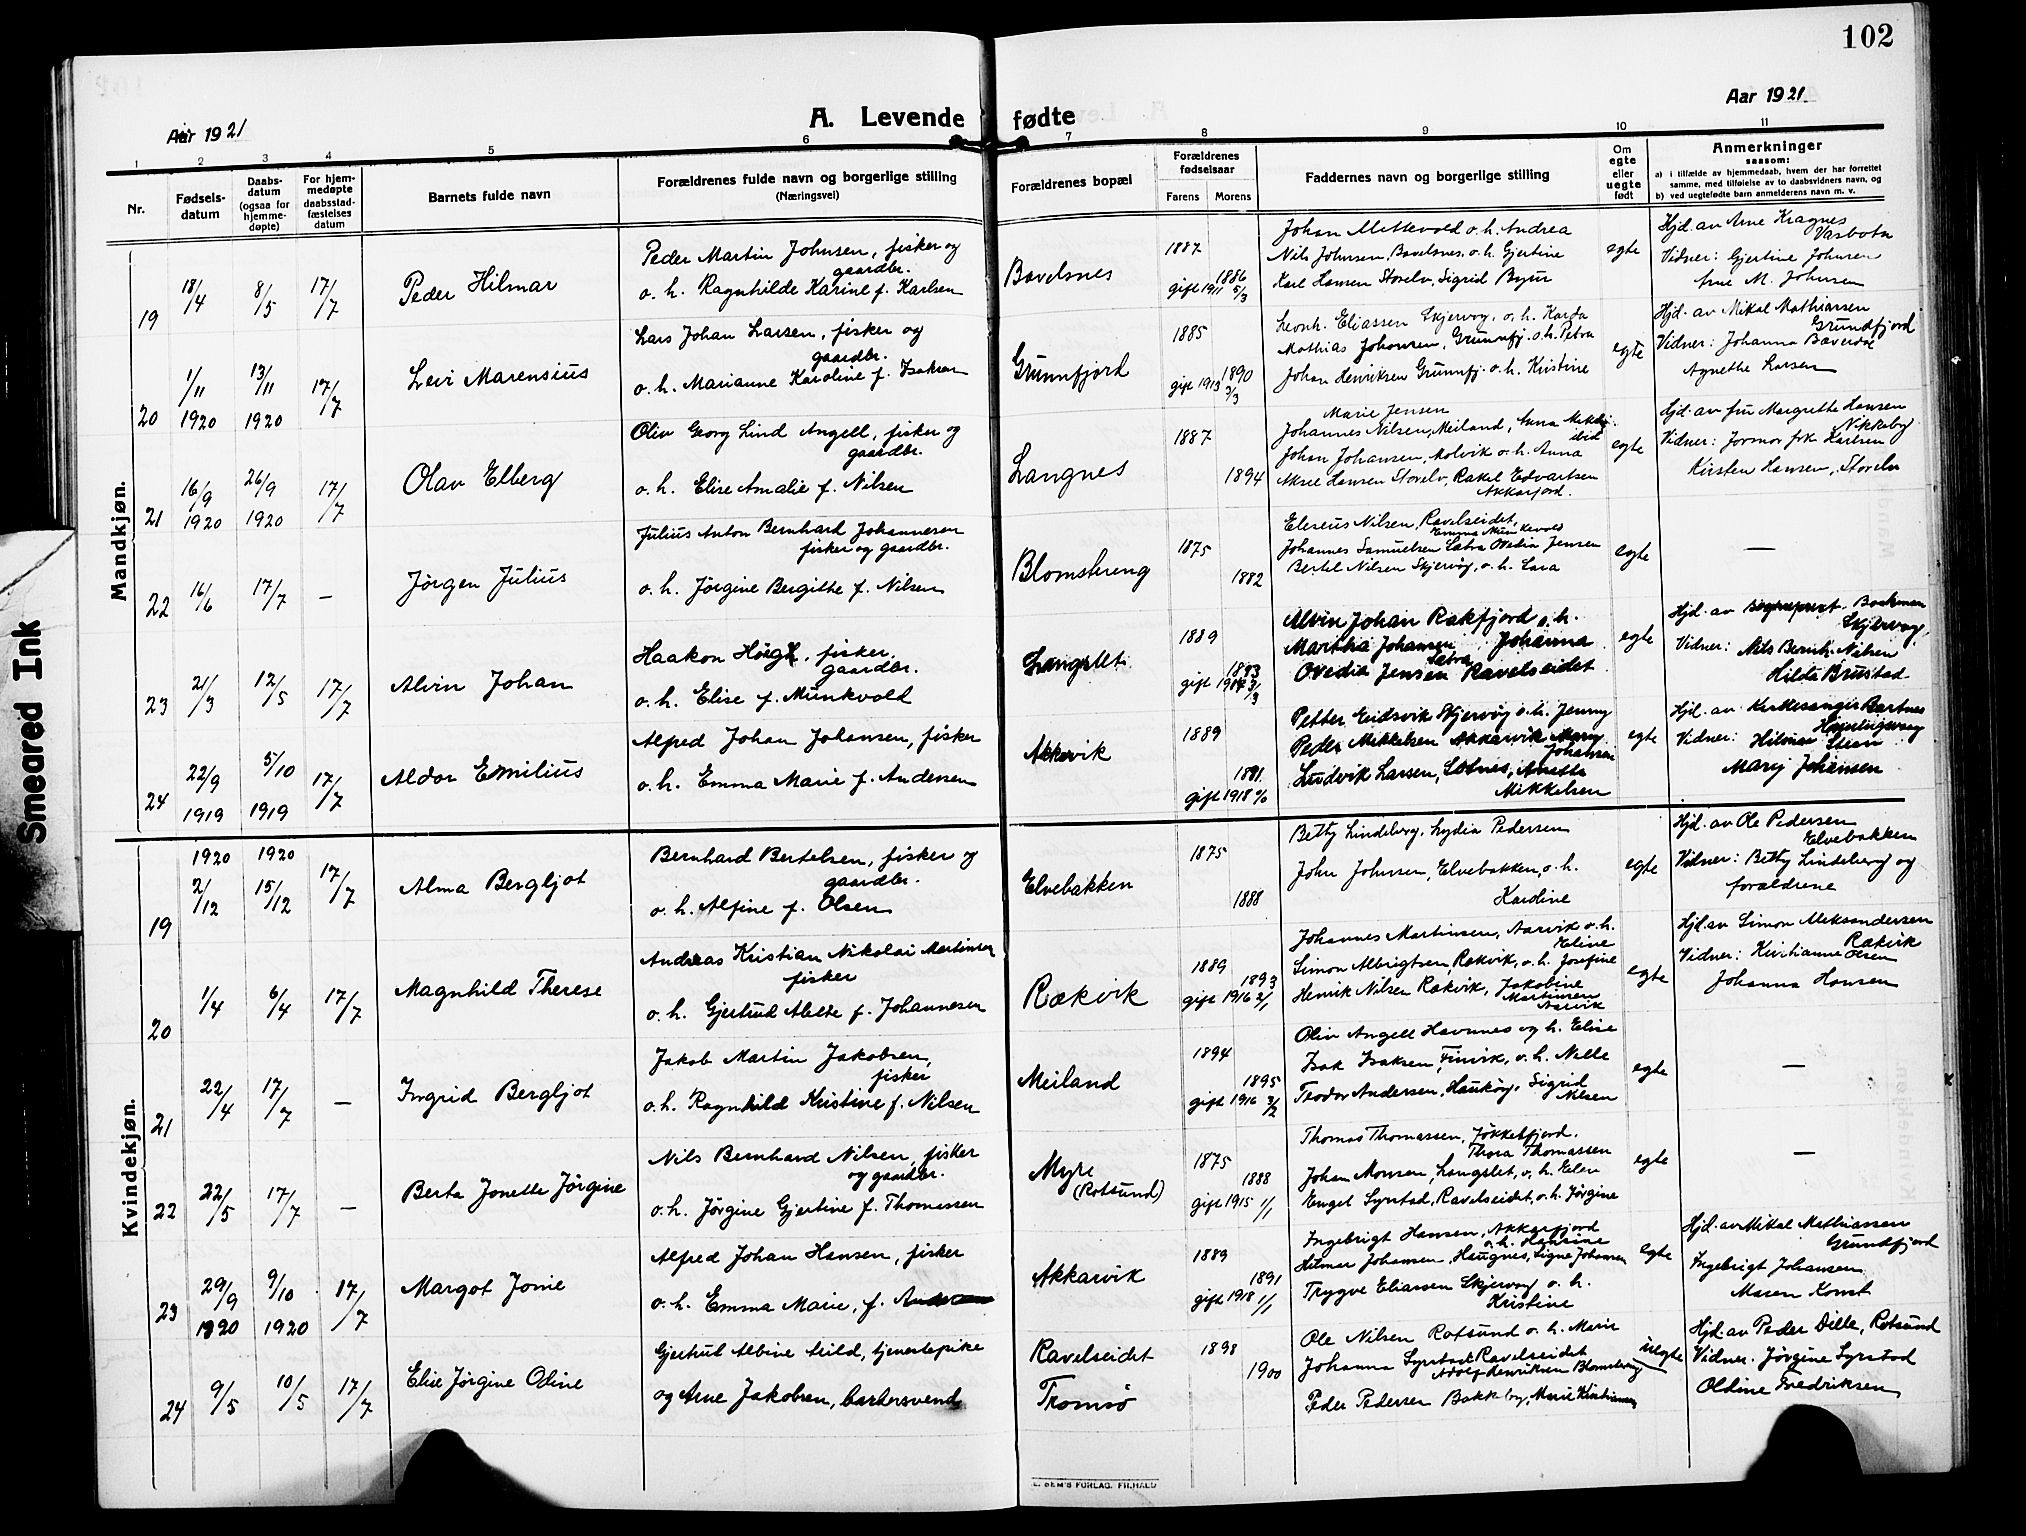 102
Aar 1921
A. Levende fødte
Aar 1921
1 2 3 4 5 6 7 8 9 10 11
Nr.
Fødsels-
datum
Daabs-
datum
(ogsaa for
hjemme-
døpte)
For hjem-
medøpte
daabsstad-
fæstelses
datum
Barnets fulde navn
Forældrenes fulde navn og borgerlige stilling
(Næringsvei)
Forældrenes bopæl
Forældrenes
fødselsaar
Farens Morens
Faddernes navn og borgerlige stilling
Om
egte
eller
uegte
født
Anmerkninger
saasom:
a) i tilfælde av hjemmedaab, hvem der har forrettet
samme, med tilføielse av to daabsvidners navn, og
b) ved uegtefødte barn anmelderens navn m. v.
Smeared Ink
Mandkjøn.
19
18/4
8/5
17/7
Peder Hilmar
Peder Martin Johnsen, fisker og
gaardbr.
o. h. Ragnhilde Karine f. Karlsen
1887
1886
gift 1911 5/3
Johan Mettevold o. h. Andrea
Nils Johnsen, o. h. Gjertine
Karl Hansen Storelv, Sigrid
egte
Hjd. av Arne Kragnes
Vidner: Gjertine Johnsen
Arne M. Johnsen
20
1/11
1920
13/11
1920
17/7
Leir Marensius
Lars Johan Larsen, fisker og
gaardbr.
o. h. Marianne Karoline f. Isaksen
Grunnfjord
1885
1890
gift 1913 3/3
Leonh. Eliassen Skjervøy, o. h. Karda
Mathias Johansen, Grunnfj. o. h. Petra
Johan Henriksen Grunnfj. o. h. Kristine
egte
Hjd. av Mikal Mathiassen
Grundfjord
Vidner: Johanna
Agnethe Larsen
21
16/9
1920
26/9
1920
17/7
Olav Elberg
Oliv Georg Lind Angell, fisker og
gaardbr.
o. h. Elise Amalie f. Nilsen
Langnes
1887
1894
Marie Jensen
Johannes Nilsen, Meiland, Anna
ibid
Johan Johansen, Molvik o. h. Anna
Aksel Hansen Storelv, Rakel Edvartsen
Akkarfjord.
egte
Hjd. av fru Margrethe Hansen
Nikkeby
Vidner: Jormor frk Karlsen
Kirsten Hansen, Storelv
22
16/6
17/7
–
Jørgen Julius
Julius Anton Bernhard Johannesen
fisker og gaardbr.
o. h. Jørgine Bergitte f. Nilsen
Blomstereng
1875
1882
Eliseus Nilsen, Ravelseidet,
Emma Munkevold
Johannes Samuelsen Ovedia Jensen
Bertel Nilsen Skjervøy, o. h. Lara
egte
—
23
21/3
12/5
17/7
Alvin Johan
Haakon fisker.
gaardbr.
o. h. Elise f. Munkvold
Langslet
1889
Alvin Johan Rakfjord o. h.
Martha Johansen Johanna
Ovedia Jensen Ravelseidet
egte
Hjd. av sogneprest. Backman
Skjervøy,
Vidner: Nils Bernh. Nilsen
Hilda Brustad
24
22/9
1919
5/10
1919
17/7
Aldor Emilius
Alfred Johan Johansen, fisker
o. h. Emma Marie f. Andersen
Akkarvik
1889
1891.
gift 1918
Petter Eidsvik Skjervøy o. h. Jenny
Peder Mikkelsen Akkarvik Mary
Johansen
Ludvik Larsen, Anette
Mikkelsen
egte
Hjd. av Kirkesanger Bartnes
Vidner: Hilmar
Mary Johansen
Kvindekjøn.
19
1920
2/12
1920
15/12
17/7
Alma Bergljot
Bernhard Bertelsen, fisker og
gaardbr.
o. h. Alfine f. Olsen
Elvebakken
1875
1888
Betty Lindeberg, Lydia Pedersen
John Johnsen, Elvebakken, o. h.
Karoline
egte
Hjd. av Ole Pedersen
Elvebakken
Vidner: Betty Lindeberg og
forældrene
20
1/4
6/4
17/7
Magnhild Therese
Andreas Kristian Nikolai Martinsen
fisker
o. h. Gjertrud Alette f. Johannesen
Rækvik
1889
1893
gift 1916 2/1
Johannes Martinsen, Aarvik o. h.
Eline
Simon Albrigtsen, Rækvik, o. h. Josefine
Henrik Nilsen Rækvik, Jakobine
Martinsen
Aarvik
egte
Hjd. av Simon Aleksandersen
Rækvik
Vidner: Kristianne Olsen
Johanna Hansen
21
22/4
17/7
—
Ingrid Bergljot
Jakob Martin Jakobsen,
fisker
o. h. Ragnhild Kristine f. Nilsen
Meiland
1894
1895
gift 1916 3/2
Oliv Angell Havnnes og h. Elise
Isak Isaksen, Finvik, o. h. Nelle
Teodor Andersen, Haukøy, Sigrid
Nilsen
egte
—
22
22/5
17/7
—
Berta Jonette Jørgine
Nils Bernhard Nilsen, fisker
og gaardbr.
o. h. Jørgine Gjertine f. Thomassen
Myre
(Rotsund)
1875
1888
gift 1915 1/1
Thomas Thomassen, Jøkkelfjord.
Thora Thomassen
Johan Monsen, Langslet, o. h. Elen
Enget Lyrstad, Ravelseidet, o. h. Jørgine
egte
—
23
29/9
1920
9/10
1920
17/7
Margot Jonie
Alfred Johan Hansen, fisker
o. h. Emma Marie, f.
Akkarvik
1889
1891
gift 1918 1/1
Ingebrigt Hansen, Akkarfjord
o. h. Hansine
Hilmar Johansen, Haugnes, Signe Johansen
Trygve Eliassen Skjervøy o. h.
Kristine
egte
Hjd. av Mikal Mathiassen
Grundfjord
Ingebrigt Johansen
Maren Konst
24
9/5
10/5
17/7
Elise Jørgine Odine
Gjertrud Albine Arild, tjenestepike
og Arne Jakobsen, barbersvend
Ravelseidet
Tromsø
1898
1900
Ole Nilsen Rotsund o. h. Marie
Johanna Lyrstad Ravelseidet
Adolf Henriksen Blomstereng
Peder Pedersen Bakkeby, Marie Kristiansen
uegte
Hjd. av Peder Dille, Rotsund
Vidner. Jørgine Lyrstad
Oldine Fredriksen
SEM'S FORLAG. FR.HALD